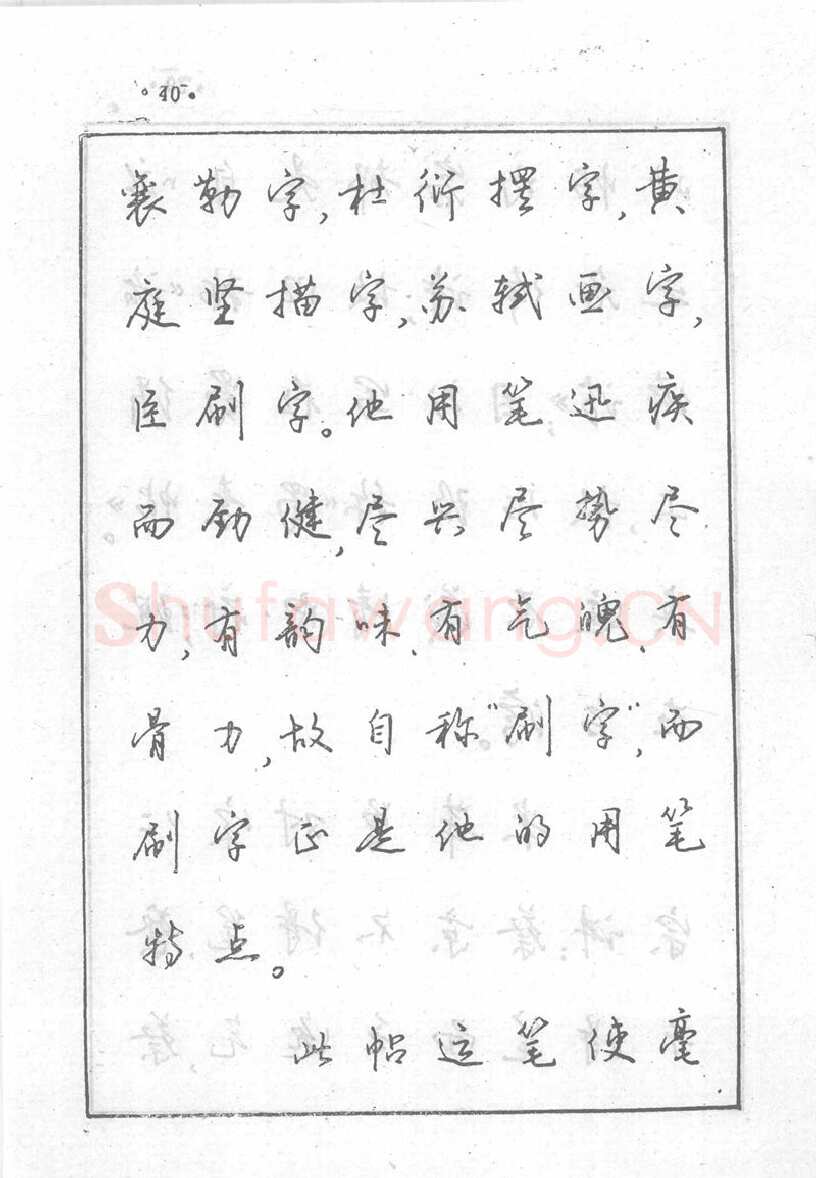 ·40·
襄勒字,杜衍摆字,黄
庭坚描字,苏轼画字,
臣刷字。他用笔迅疾
而劲健,尽兴尽势尽
力,有韵味、有气魄、有
骨力,故自称“刷字”,而
刷字正是他的用笔
特点。
此帖运笔使毫
Shufawang.CN